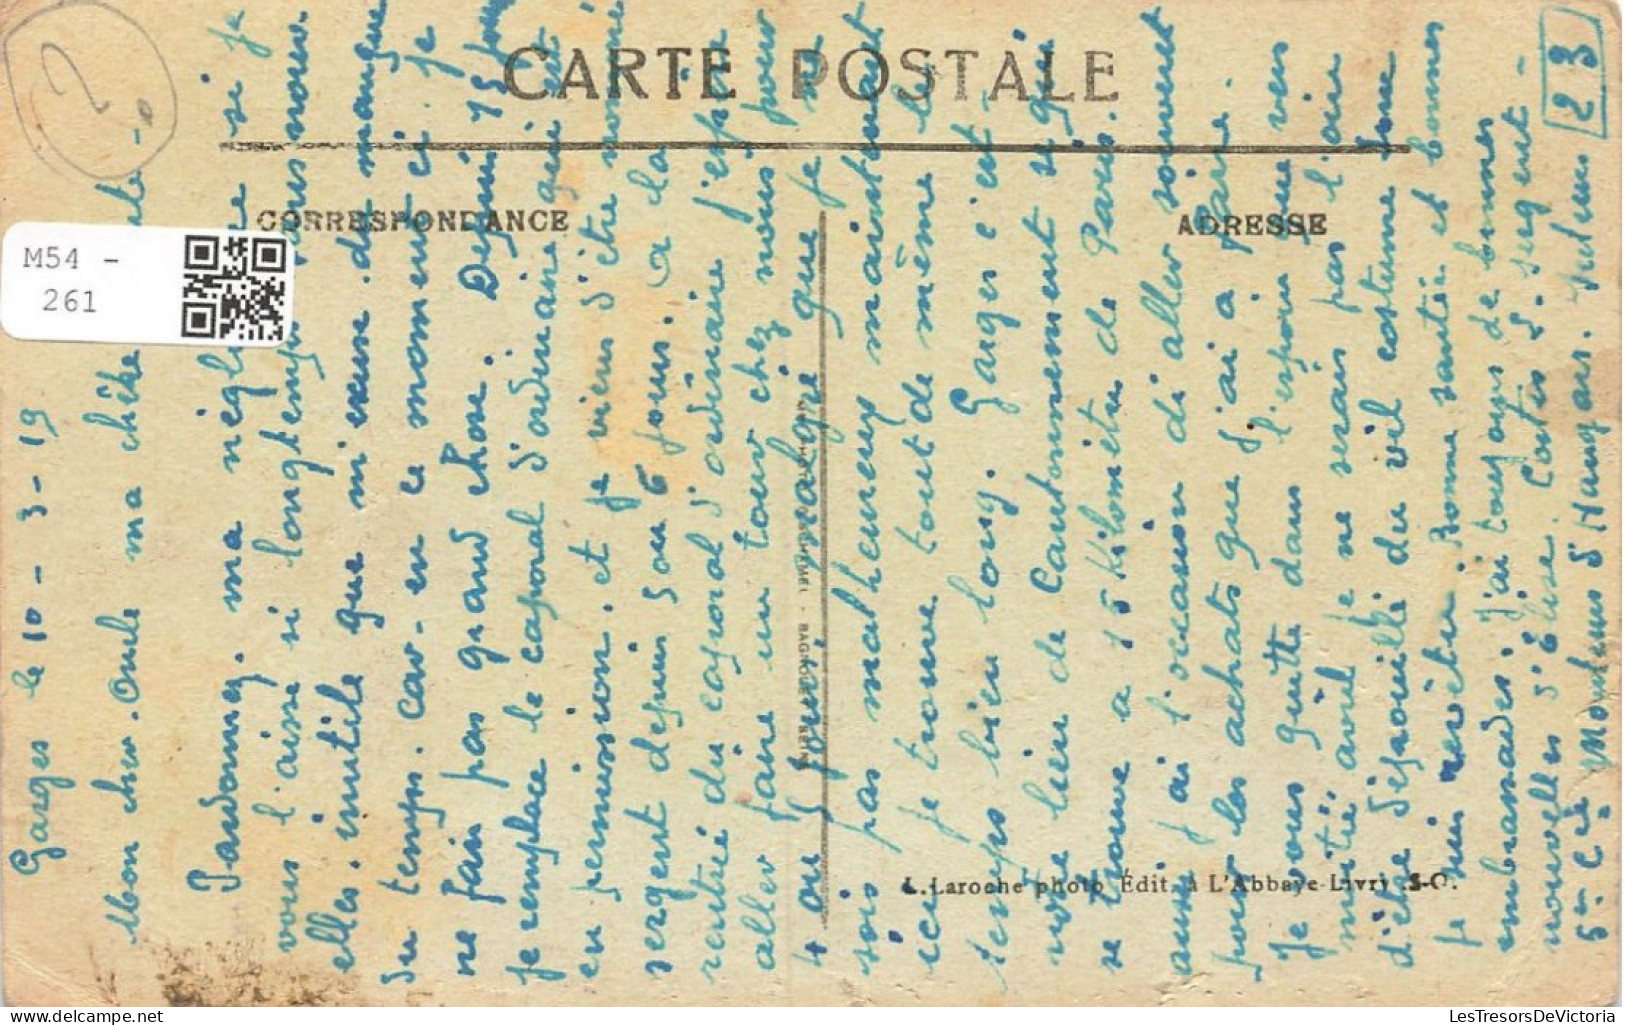 CARTE POSTALE
CORRESPONDANCE
ADRESSE
M54 -
261
?
23
L. Laroche photo Édit. à L'Abbaye-Livry S-O.
Garges le 10 - 3 - 19
Mon cher Oncle ma chère
Pardonnez. ma si je
vous l'aisse si longtemps nouv.
elles. inutile que m'excuse. du manque
du temps. Car. en ce moment ci je
ne fais pas grand chose. Depuis 15 jours
je remplace le caporal d'ordinaire qui est
en permission. et je viens d'être nommé
sergent depuis 5 ou 6 jours. a la
rentrée du caporal d'ordinaire j'espère
aller faire un tour chez nous pour
4 ou 5 jours. malgré que je ne
sois pas malheureux maintenant
ici je trouve tout de même le
temps bien long. Garges c'est
notre lieu de Cantonnement se qui
se trouve a 15 Kilomètre de Paris.
aussi j'ai l'occasion di aller souvent
pour les achats que j'ai a faire.
Je vous quitte dans l'espoir que vers
moitié avril je ne serais pas l'oin
d'être dépouillé du vil costume Donc
je suis revêtu Bonne santée et bonnes
embrassades. j'ai toujours de bonnes
nouvelles d'Elise. Contis S. sergent -
5me Cie